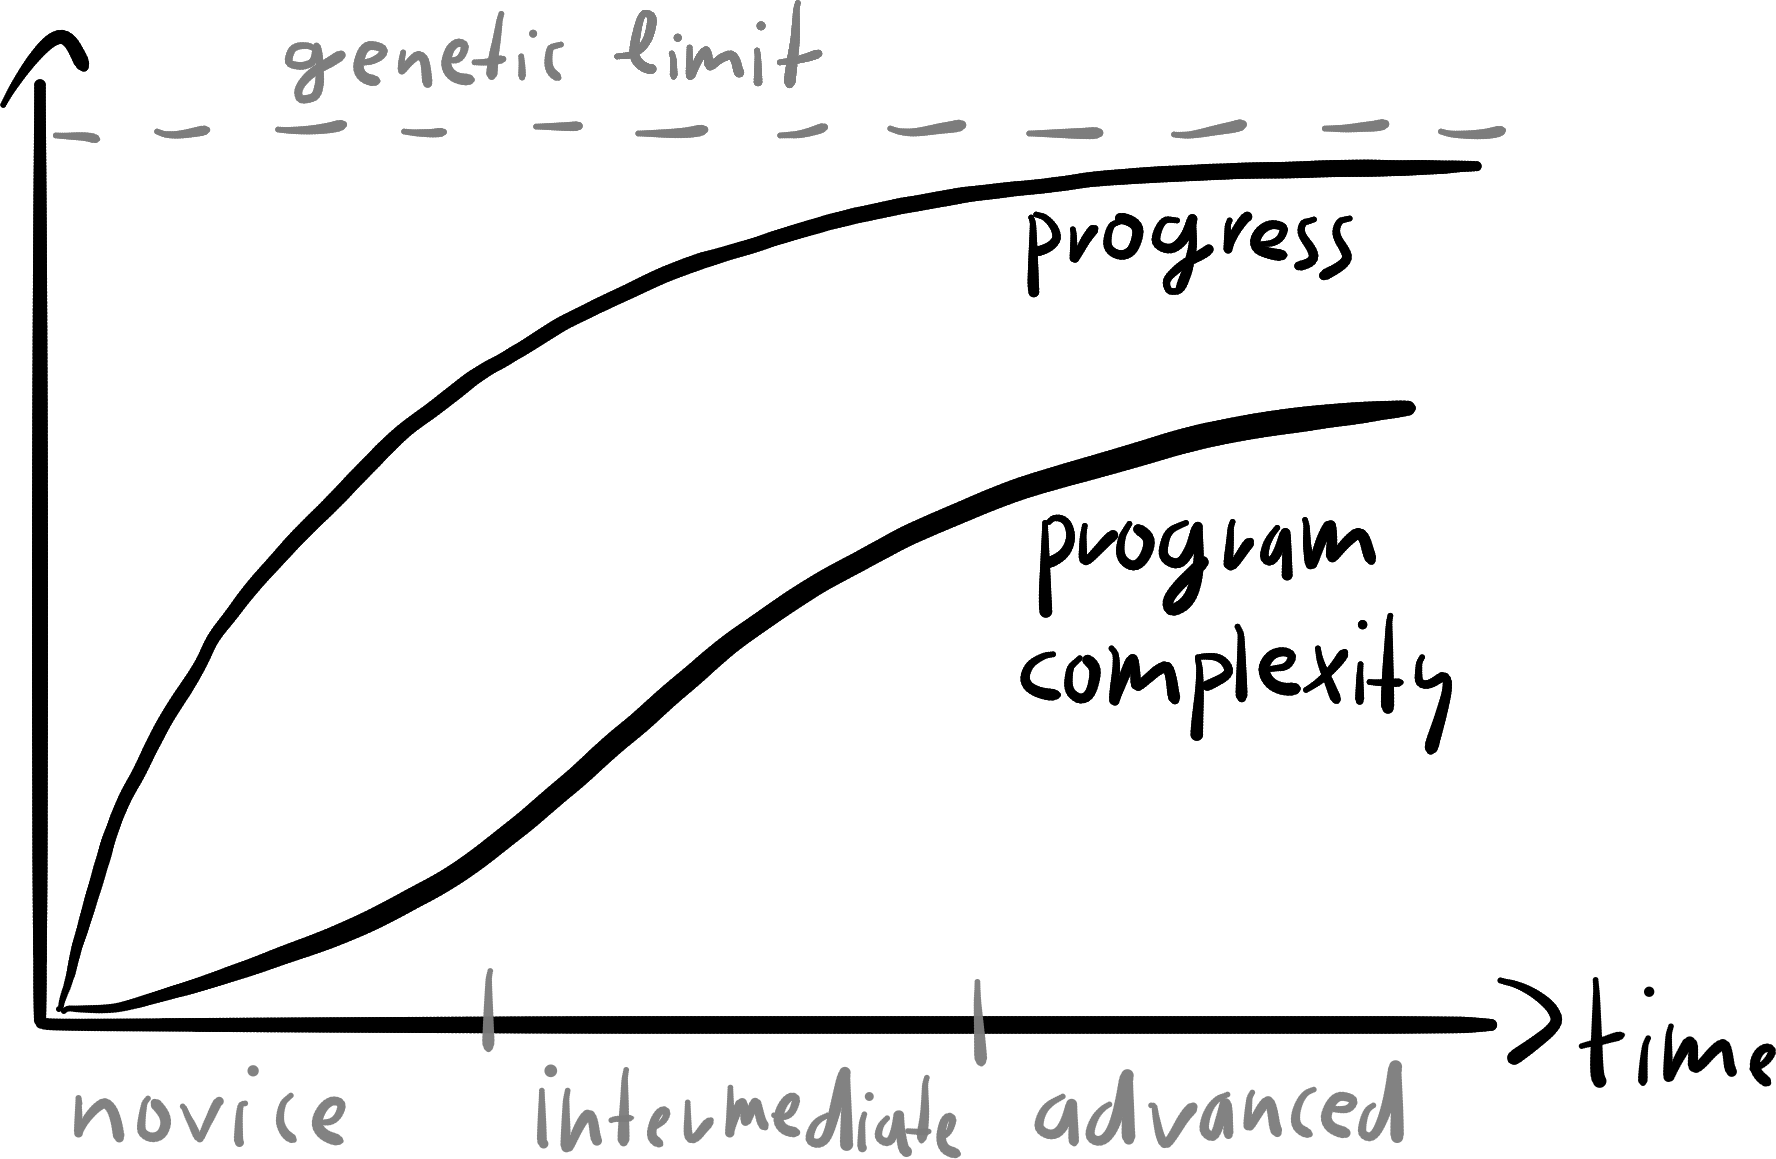 genetic limit
progress
program
complexity
time
novice
intermediate
advanced